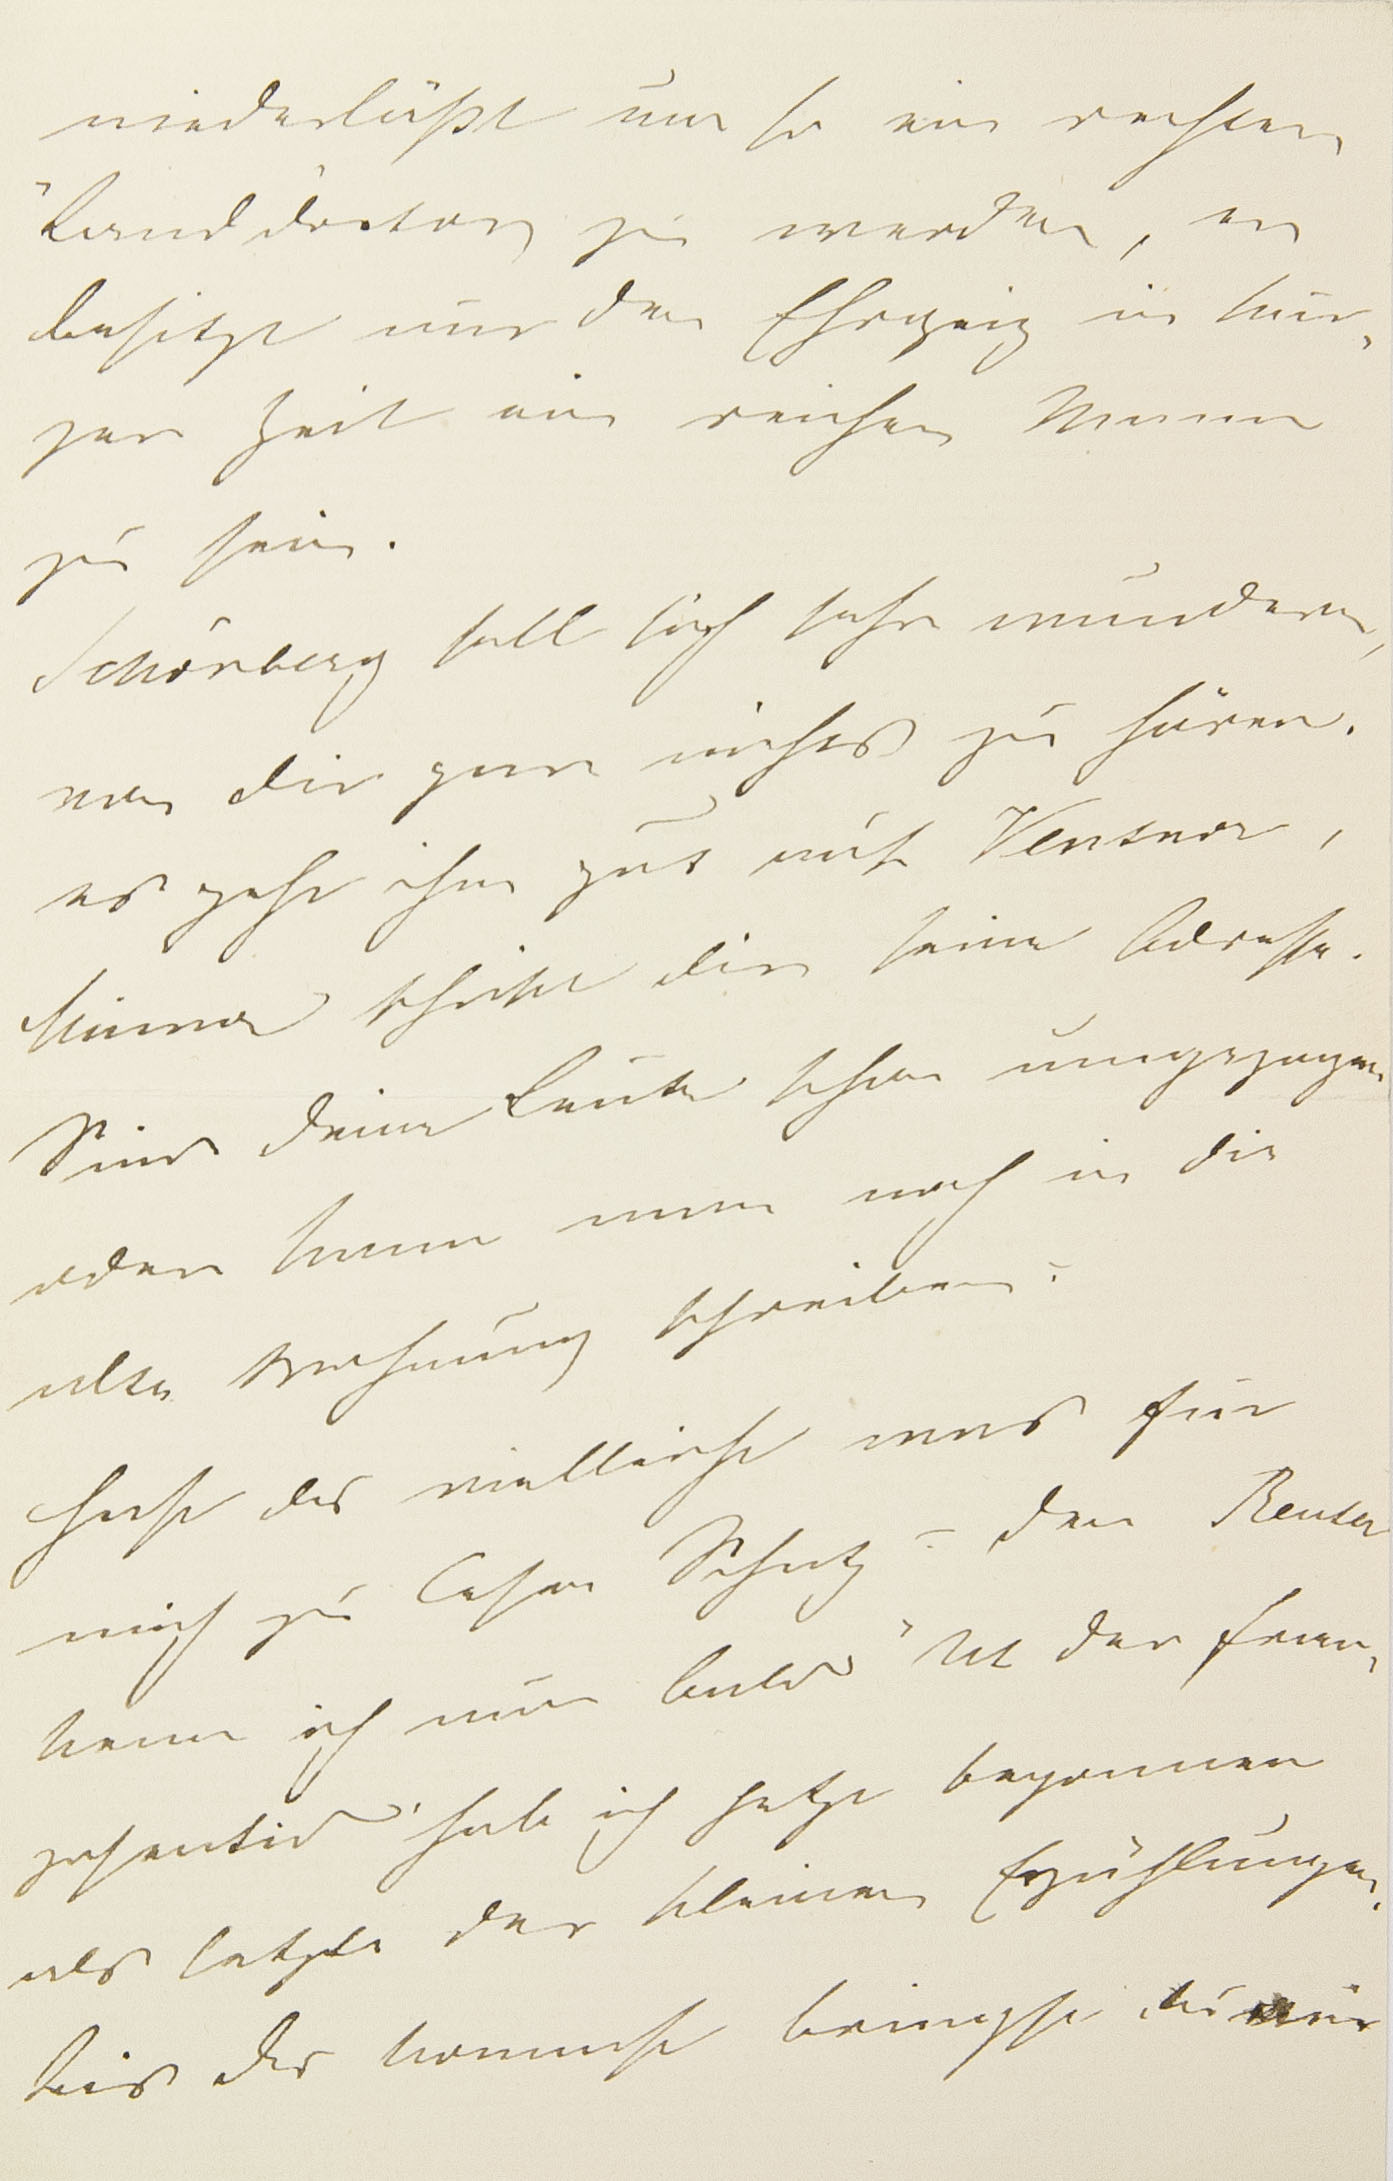 niederläßt um so ein rechter
"Landdoctor zu werden, er
besitzt nur den Ehrgeiz in kur-
zer Zeit ein reicher Mann
zu sein.
Schönberg soll sich sehr wundern,
von dir gar nichts zu hören.
es geht ihm gut auf Ventnor,
Minna schickt dir seine Adresse.
Sind deine Leute schon umgezogen
oder kann man noch in die
alte Wohnung schreiben?
Hast du vielleicht was für
mich zu lesen Schatz - den Reuter
kenn ich nun bald "Ut der Fran-
zosentid" hab ich jetzt begonnen
als letzte der kleinen Erzählungen.
bis du kommst bringst du mir